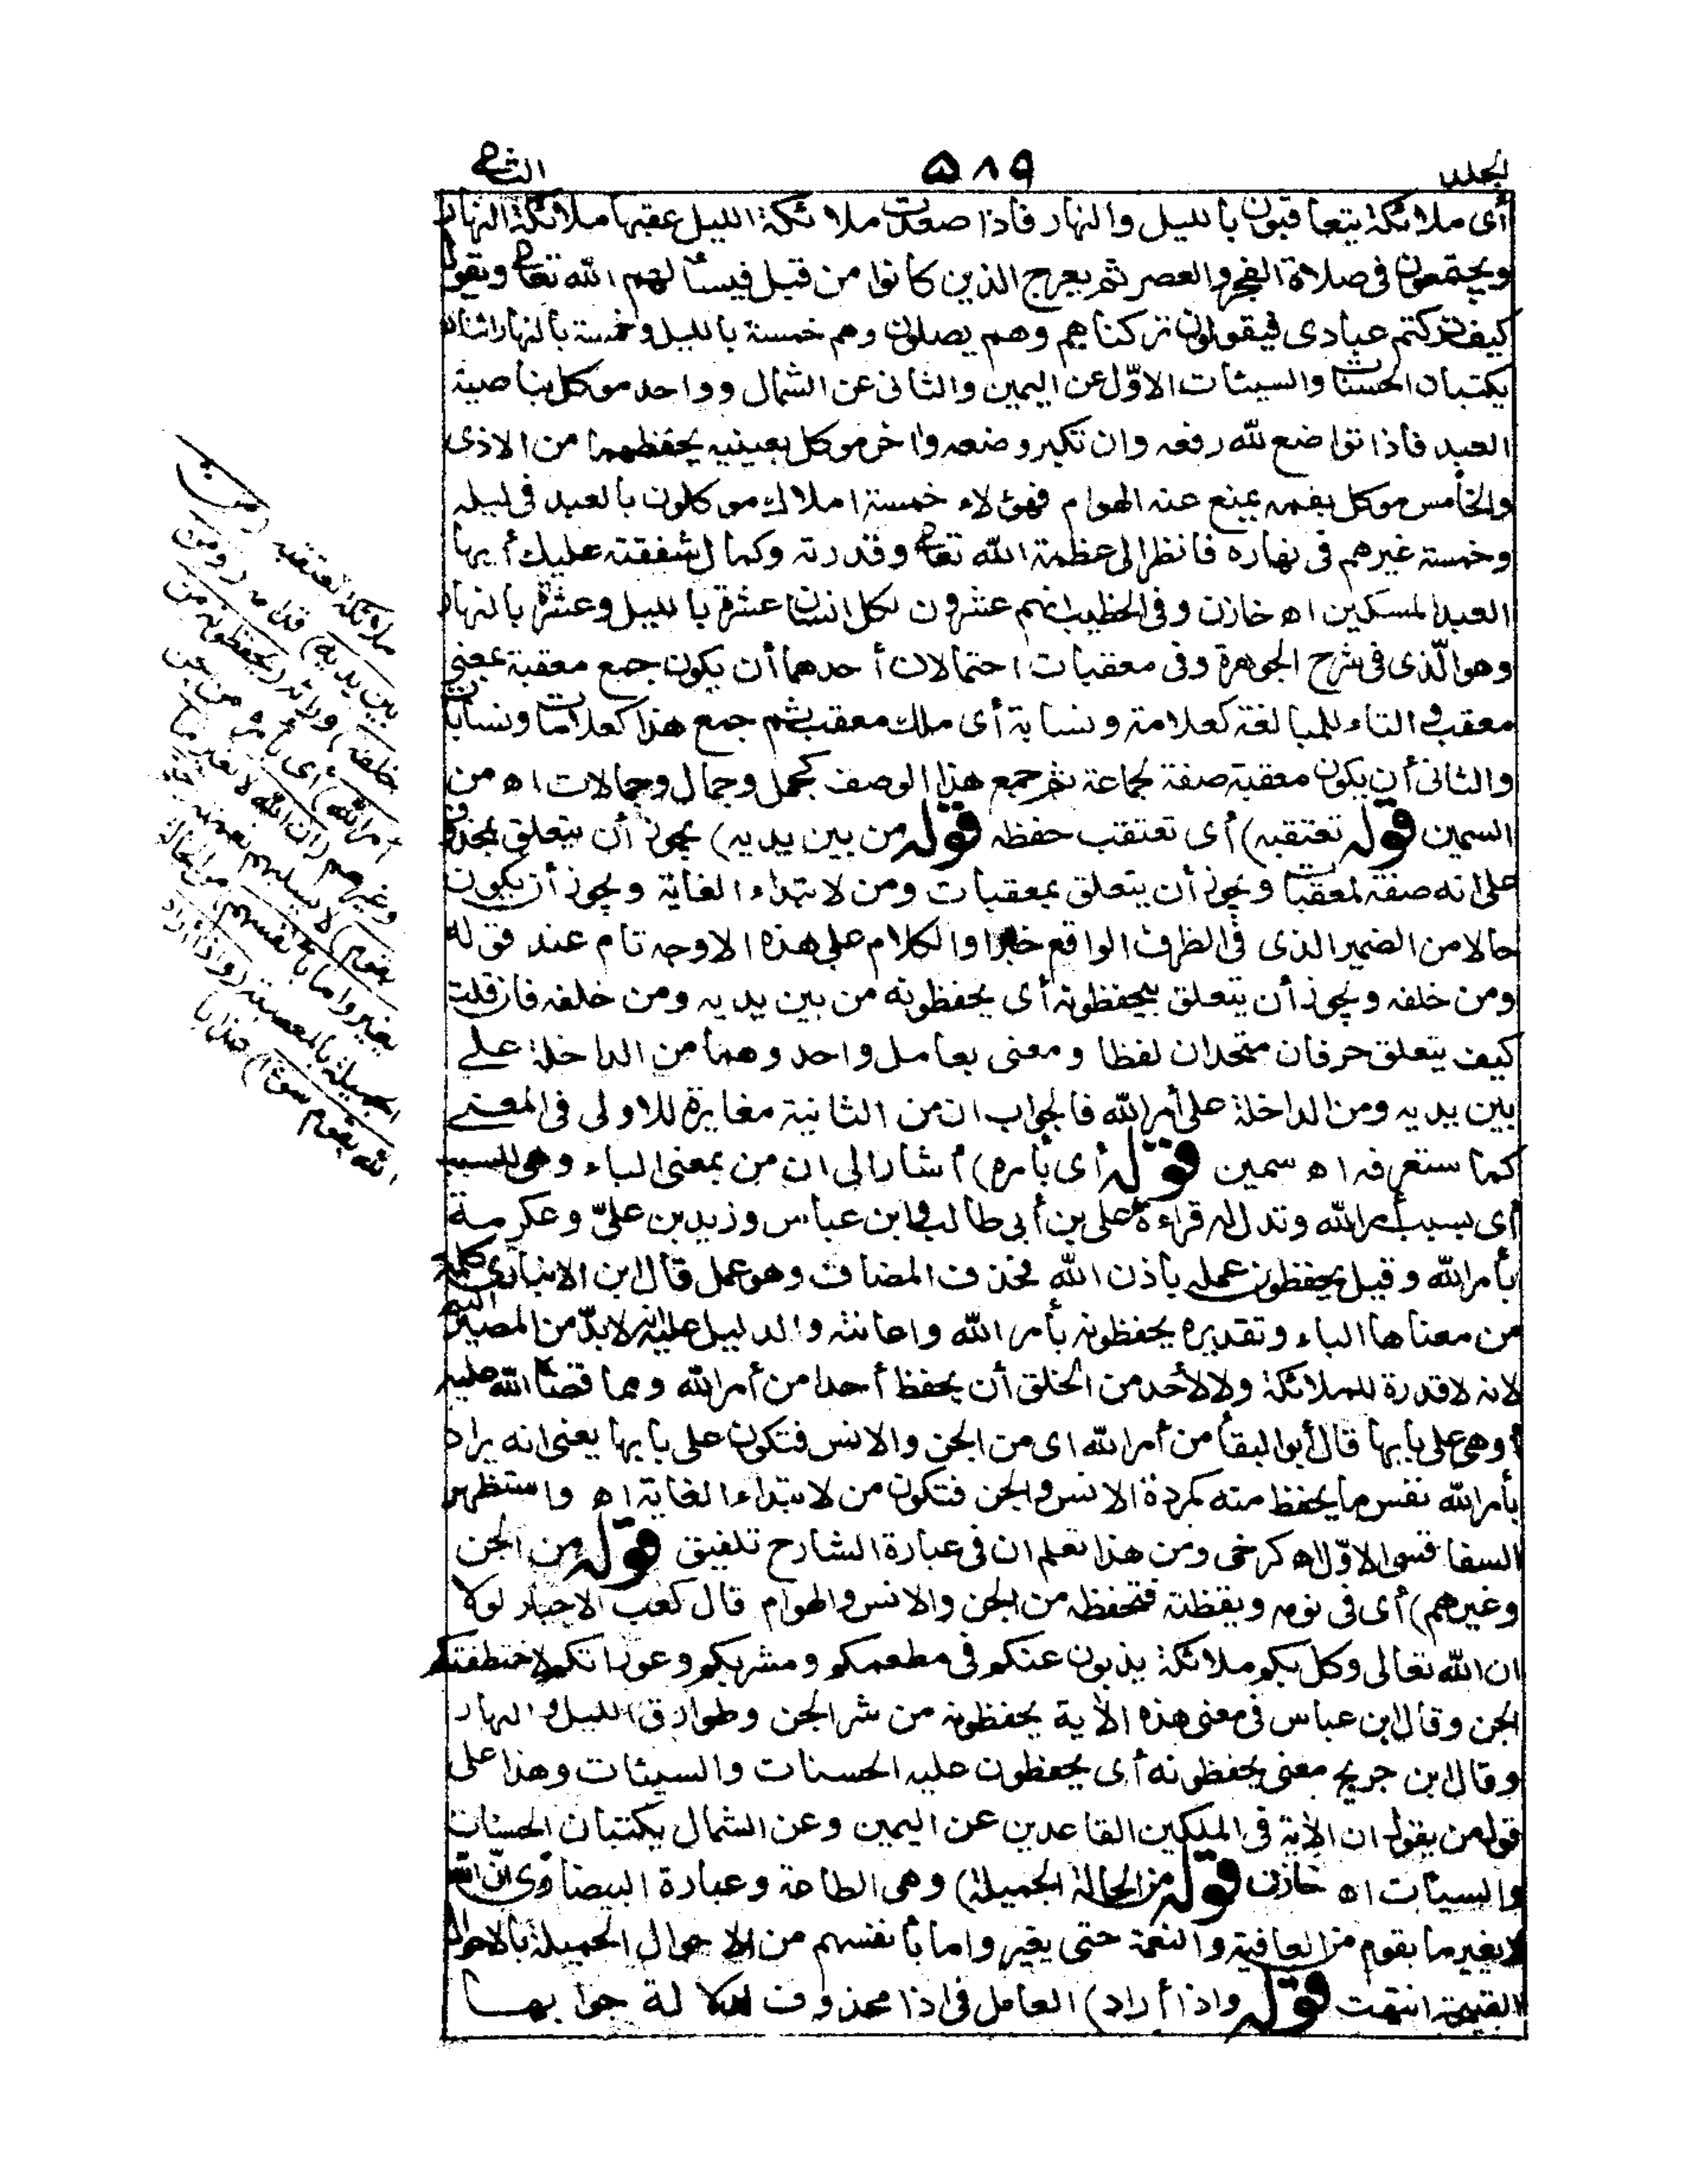 الجلد ٥٨٩ الثانى
أى ملائكة يتعاقبون بالليل والنهار فاذا صعدت ملائكة الليل عقبها ملائكة النهار
ويجتمعون فى صلاة الفجر والعصر ثم يعرج الذين كانوا من قبل فيسألهم الله تعالى ويقول
كيف تركتم عبادى فيقولون تركناهم وهم يصلون وهم خمسة بالليل وخمسة بالنهار اثنان
يكتبان الحسنات والسيئات الاوّل عن اليمين والثانى عن الشمال وواحد موكل بناصية
العبد فاذا تواضع لله رفعه وان تكبر وضعه واخر موكل بعينيه يحفظهما من الاذى
والخامس موكل بفمه يمنع عنه الهوام فهؤلاء خمسة املاك موكلون بالعبد فى ليله
وخمسة غيرهم فى نهاره فانظر الى عظمة الله تعالى وقدرته وكمال شفقته عليك أيها
العبد المسكين اه خازن وفى الخطيب انهم عشرون لكل انسان عشرة بالليل وعشرة بالنهار
وهو الّذى فى شرح الجوهرة وفى معقبات احتمالان أحدهما أن يكون جمع معقبة بمعنى
معقب والتاء للمبالغة كعلامة ونسابة أى ملك معقب ثم جمع هذا كعلامات ونسابات
والثانى أن يكون معقبة صفة لجماعة ثم جمع هذا الوصف كجمل وجمال وجمالات اه من
السمين قوله تعتقبه) أى تعتقب حفظه قوله من بين يديه) يجوز أن يتعلق بمحذوف
على انه صفة لمعقبات ويجوز أن يتعلق بمعقبات ومن لابتداء الغاية ويجوز أن يكون
حالا من الضمير الذى فى الظرف الواقع خبرا والكلام على هذه الاوجه تام عند قوله
ومن خلفه ويجوز أن يتعلق بيحفظونه أى يحفظونه من بين يديه ومن خلفه فان قلت
كيف يتعلق حرفان متحدان لفظا ومعنى بعامل واحد وهما من الداخلة على
بين يديه ومن الداخلة على أمر الله فالجواب ان من الثانية مغايرة للاولى فى المعنى
كما ستعرفه اه سمين قوله أى بأمره) أشار الى ان من بمعنى الباء وهى للسبب
أى بسبب أمر الله وتدل له قراءة على بن أبى طالب وابن عباس وزيد بن علىّ وعكرمة
بأمر الله وقيل يحفظون عمله باذن الله فحذف المضاف وهو عمل قال ابن الانبارى كلمة
من معناها الباء وتقديره يحفظونه بأمر الله واعانته والدليل عليه انه لابدّ من المصير اليه
لانه لا قدرة للملائكة ولا لأحد من الخلق أن يحفظ أحدا من أمر الله ومما قضاه الله عليه
أو هى على بابها قال أبو البقا من أمر الله اى من الجن والانس فتكون على بابها يعنى انه يراد
بأمر الله نفس ما يحفظ منه كمردة الانس والجن فتكون من لابتداء الغاية اه واستظهر
السفاقسى الاوّل اه كرخى ومن هذا تعلم ان فى عبارة الشارح تلفيق قوله من الجن
وغيرهم) أى فى نومه ويقظته فتحفظه من الجن والانس والهوام قال كعب الاحبار لولا
ان الله تعالى وكل بكم ملائكة يذبون عنكم فى مطعمكم ومشربكم وعوراتكم لاختطفتكم
الجن وقال ابن عباس فى معنى هذه الآية يحفظونه من شر الجن وطوارق الليل والنهار
وقال ابن جريج معنى يحفظونه أى يحفظون عليه الحسنات والسيئات وهذا على
قول من يقول ان الآية فى الملكين القاعدين عن اليمين وعن الشمال يكتبان الحسنات
والسيئات اه خازن قوله من الحالة الجميلة) وهى الطاعة وعبارة البيضاوى انّ الله
لا يغير ما بقوم من العافية والنعمة حتى يغيروا ما بأنفسهم من الاحوال الجميلة بالاحوال
القبيحة انتهت قوله واذا أراد) العامل فى اذا محذوف لدلالة جوابها
ملائكة تعتقبه (من
بين يديه) قدامه (ومن
خلفه) ورائه (يحفظونه من
أمر الله) أى بأمره من الجن
وغيرهم (ان الله لا يغير ما
بقوم) لا يسلبهم نعمته (حتى
يغيروا ما بأنفسهم) من الحالة
الجميلة بالمعصية (واذا أراد
الله بقوم سوءا) عذابا